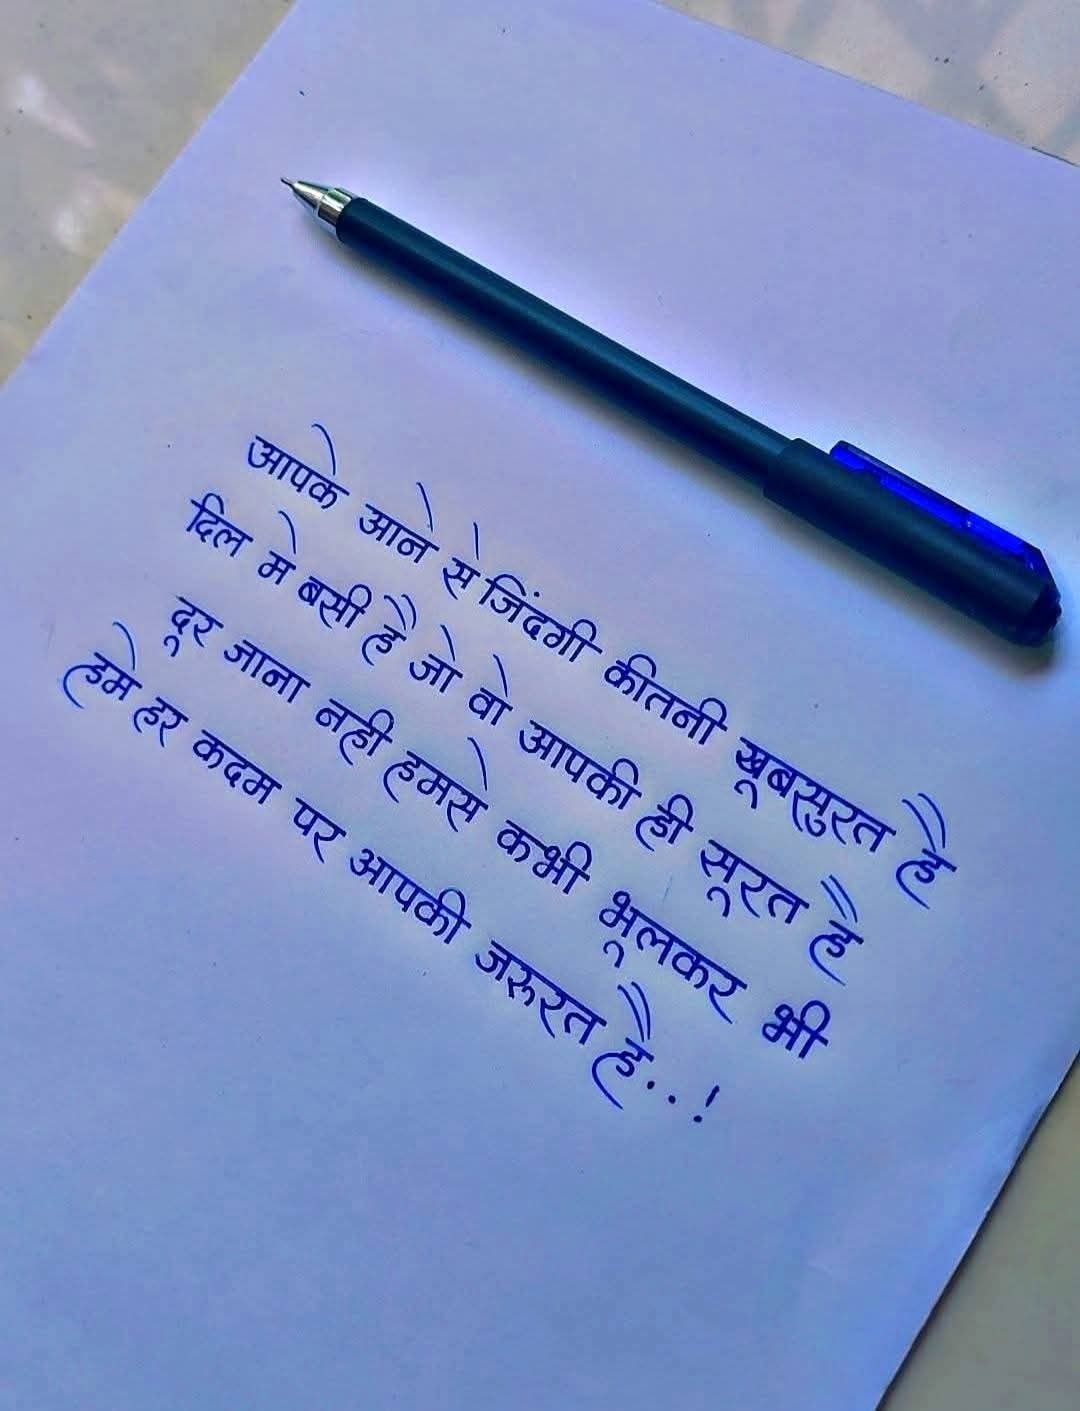 आपके आने से जिंदगी कीतनी खूबसुरत है
दिल मे बसी है जो वो आपकी ही सूरत है
दूर जाना नही हमसे कभी भूलकर भी
हमे हर कदम पर आपकी जरूरत है..!